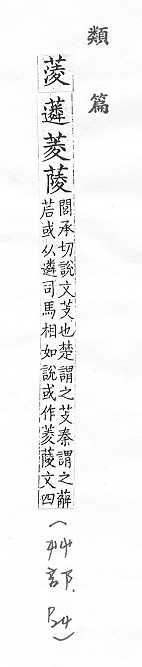 類篇
蔆䔖菱蓤
閭承切說文芰也楚謂之芰秦謂之薢
茩或从遴司馬相如說或作菱蓤文四
(艸部.